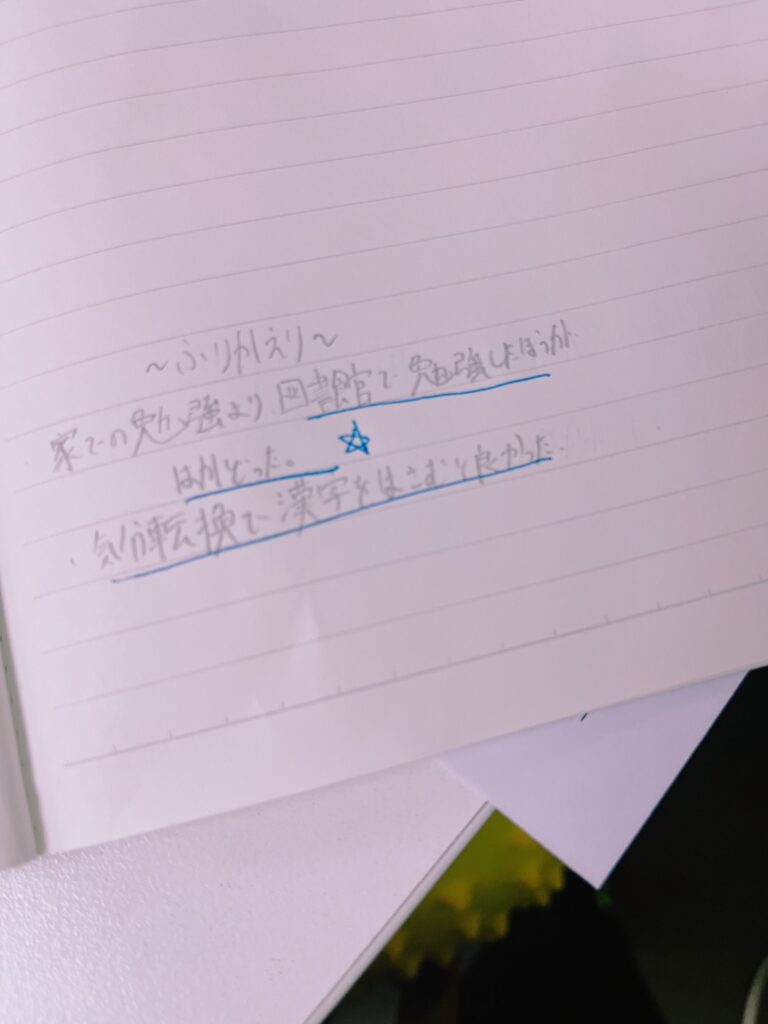 ~ふりかえり~
・家での勉強より、図書館で勉強したほうが
はかどった。☆
・気分転換で漢字をはさむと良かった。